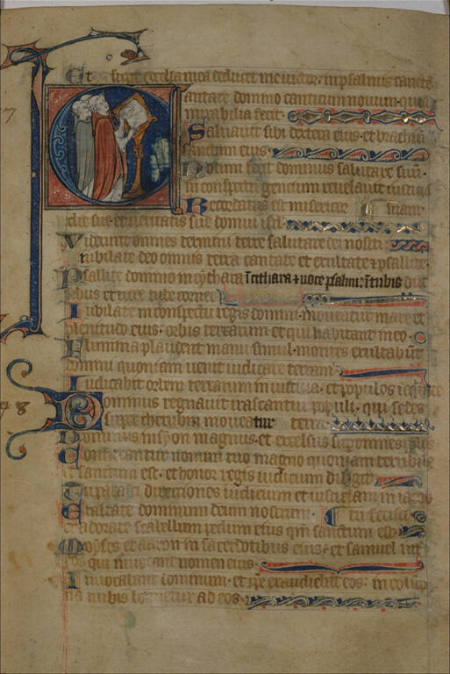 antate domino canticum novum quia
mirabilia fecit
Saluauit sibi dextera eius et brachiu
sanctum eius
Notum fecit dominus salutare suu
in conspectu gentium reuelauit
Recordatus est misericor
sue domui isrl
Viderunt omnes termini terre salutare dei nostri
iubilate deo omnis terra cantate et exultate et psallite
Psallite domino in cythara i cithara + uoce psalmi: i tubis duc
bus et uoce tube cornee
Iubilate in conspectu regis domini moueatur mare et
plenitudo eius orbis terrarum et qui habitant in eo
Flumina plaudent manu simul montes exultabunt
domini quoniam uenit iudicare terram
Iudicabit orbem terrarum in iusticia et populos in
Dominus regnauit irascantur populi qui sedes
super cherubin moueatur terra
Dominus in syon magnus et excelsus sup omnes
Confiteantur nomini tuo magno quoniam terribile
et sanctum est et honor regis iudicium diligit
directiones iudicium et iusticiam in iacob
Exaltate dominum deum nostrum Tu fecisti
et adorate scabellum pedum eius qm sanctum est
Moyses et aaron in sacerdotibus eius et samuel int
eos qui inuocant nomen eius
Inuocabant dominum et ipe exaudiebat eos in colup
na nubis loquetur ad eos